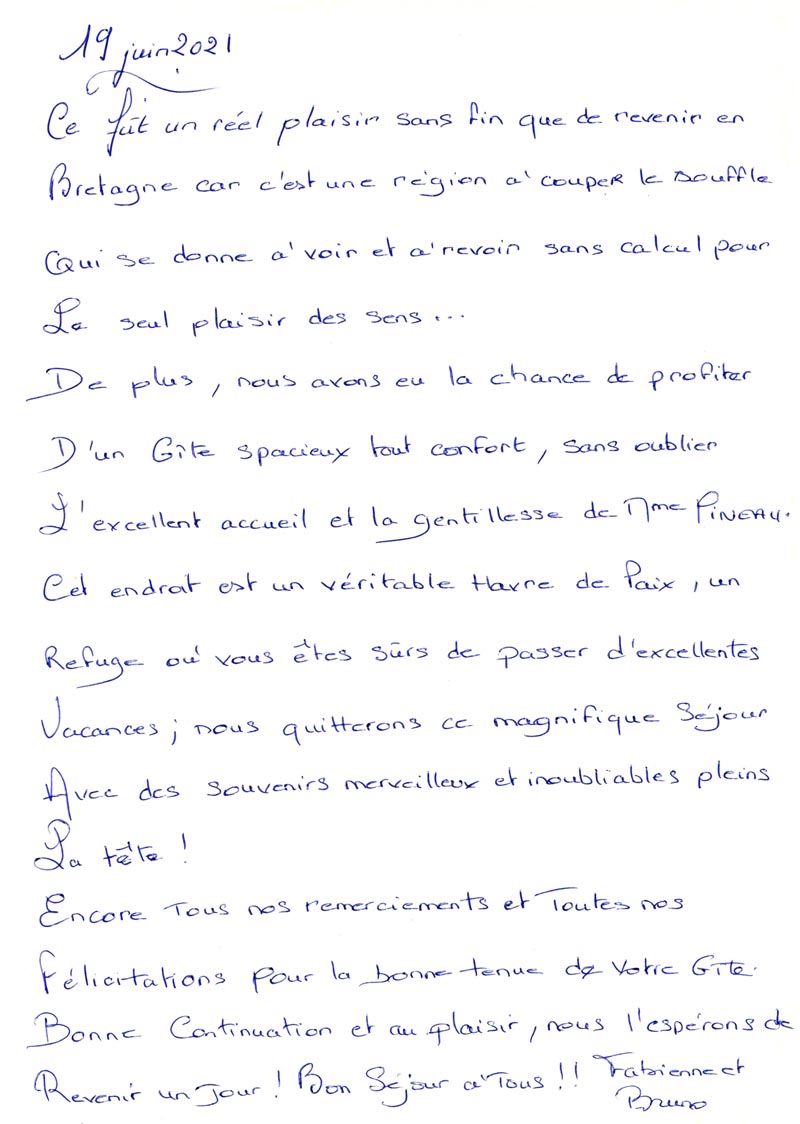 19 juin 2021
Ce fût un réel plaisir sans fin que de revenir en
Bretagne car c'est une région à couper le souffle
Qui se donne à voir et à revoir sans calcul pour
Le seul plaisir des sens...
De plus, nous avons eu la chance de profiter
D'un Gîte spacieux tout confort, sans oublier
L'excellent accueil et la gentillesse de Mme PINEAU.
Cet endroit est un véritable Havre de Paix, un
Refuge où vous êtes sûrs de passer d'excellentes
Vacances ; nous quitterons ce magnifique Séjour
Avec des souvenirs merveilleux et inoubliables pleins
La tête !
Encore Tous nos remerciements et Toutes nos
Félicitations pour la bonne tenue de Votre Gîte.
Bonne Continuation et au plaisir, nous l'espérons de
Revenir un Jour ! Bon Séjour à Tous !! Fabienne et
Bruno